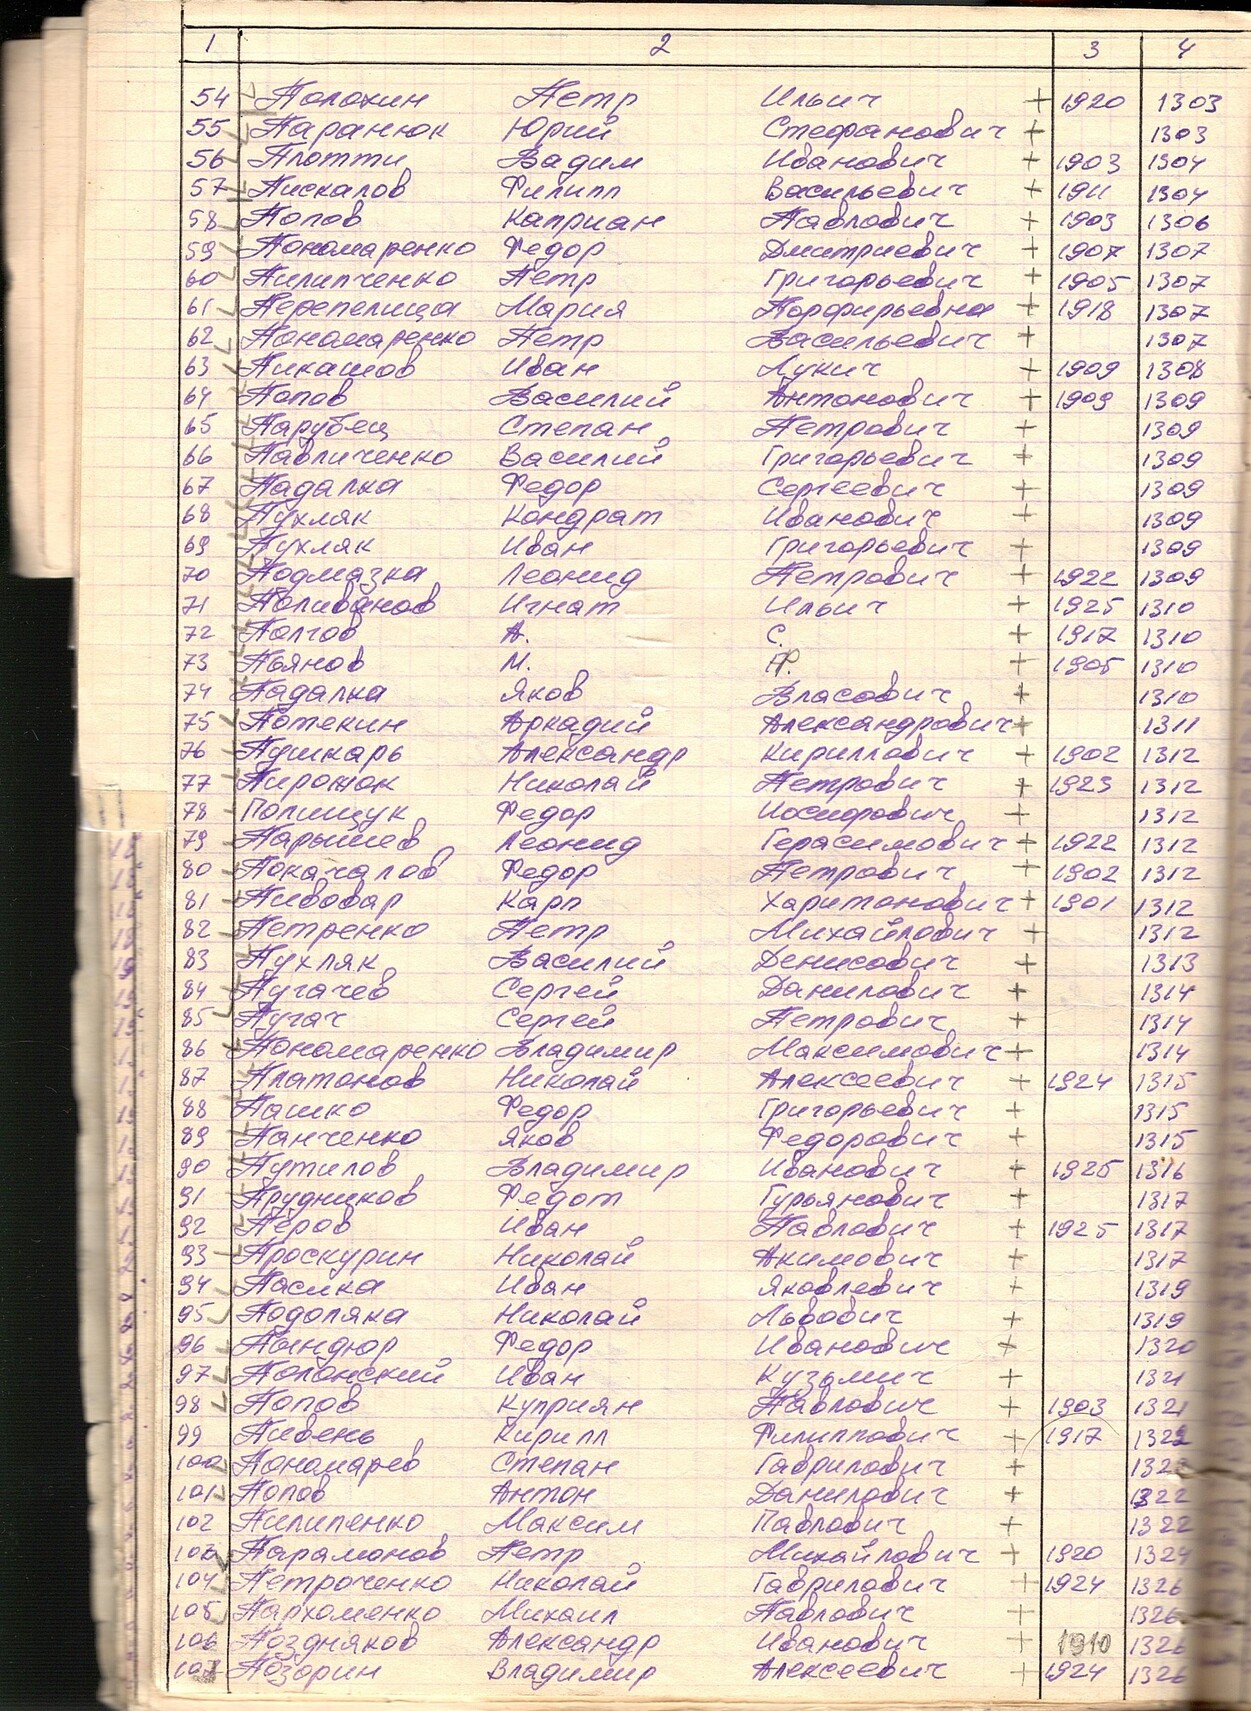 1 2 3 4
54 Полохин Петр Ильич + 1920 1303
55 Паранюк Юрий Стефанович + 1303
56 Плотти Вадим Иванович + 1903 1304
57 Пискалов Филипп Васильевич + 1911 1304
58 Попов Каприан Павлович + 1903 1306
59 Пономаренко Федор Дмитриевич + 1907 1307
60 Пилипченко Петр Григорьевич + 1905 1307
61 Перепелица Мария Порфирьевна + 1918 1307
62 Пономаренко Петр Васильевич + 1307
63 Пикашов Иван Лукич + 1909 1308
64 Попов Василий Антонович + 1909 1309
65 Парубец Степан Петрович + 1309
66 Павличенко Василий Григорьевич + 1309
67 Падалка Федор Сергеевич + 1309
68 Пухляк Кондрат Иванович + 1309
69 Пухляк Иван Григорьевич + 1309
70 Подмазка Леонид Петрович + 1922 1309
71 Поливанов Игнат Ильич + 1925 1310
72 Полгов А. С. + 1917 1310
73 Пьянов М. + 1905 1310
74 Падалка Яков Власович + 1310
75 Потекин Аркадий Александрович + 1311
76 Пушкарь Александр Кириллович + 1902 1312
77 Пирожок Николай Петрович + 1923 1312
78 Полищук Федор Иосифович + 1312
79 Парышев Леонид Герасимович + 1922 1312
80 Покачалов Федор Петрович + 1902 1312
81 Пивовар Карп Харитонович + 1901 1312
82 Петренко Петр Михайлович + 1312
83 Пухляк Василий Денисович + 1313
84 Пугачев Сергей Данилович + 1314
85 Пугач Сергей Петрович + 1314
86 Пономаренко Владимир Максимович + 1314
87 Платонов Николай Алексеевич + 1924 1315
88 Пашко Федор Григорьевич + 1315
89 Панченко Яков Федорович + 1315
90 Путилов Владимир Иванович + 1925 1316
91 Прудников Федот Гурьянович + 1317
92 Перов Иван Павлович + 1925 1317
93 Проскурин Николай Акимович + 1317
94 Пасика Иван Яковлевич + 1319
95 Подоляка Николай Львович + 1319
96 Пындюр Федор Иванович + 1320
97 Полонский Иван Кузьмич + 1321
98 Попов Куприян Павлович + 1903 1321
99 Пивень Кирилл Филиппович + 1917 1322
100 Пономарев Степан Гаврилович + 132
101 Попов Антон Данилович + 1322
102 Пилипенко Максим Павлович + 1322
103 Парамонов Петр Михайлович + 1920 1324
104 Петроченко Николай Гаврилович + 1924 1326
105 Пархоменко Михаил Павлович + 1326
106 Поздняков Александр Иванович + 1910 1326
107 Позорин Владимир Алексеевич + 1924 1326